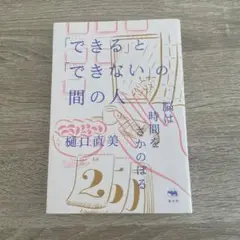 「できる」と
「できない」の
間の人
脳は
時間を
さかのぼる
樋口直美
25
晶文社